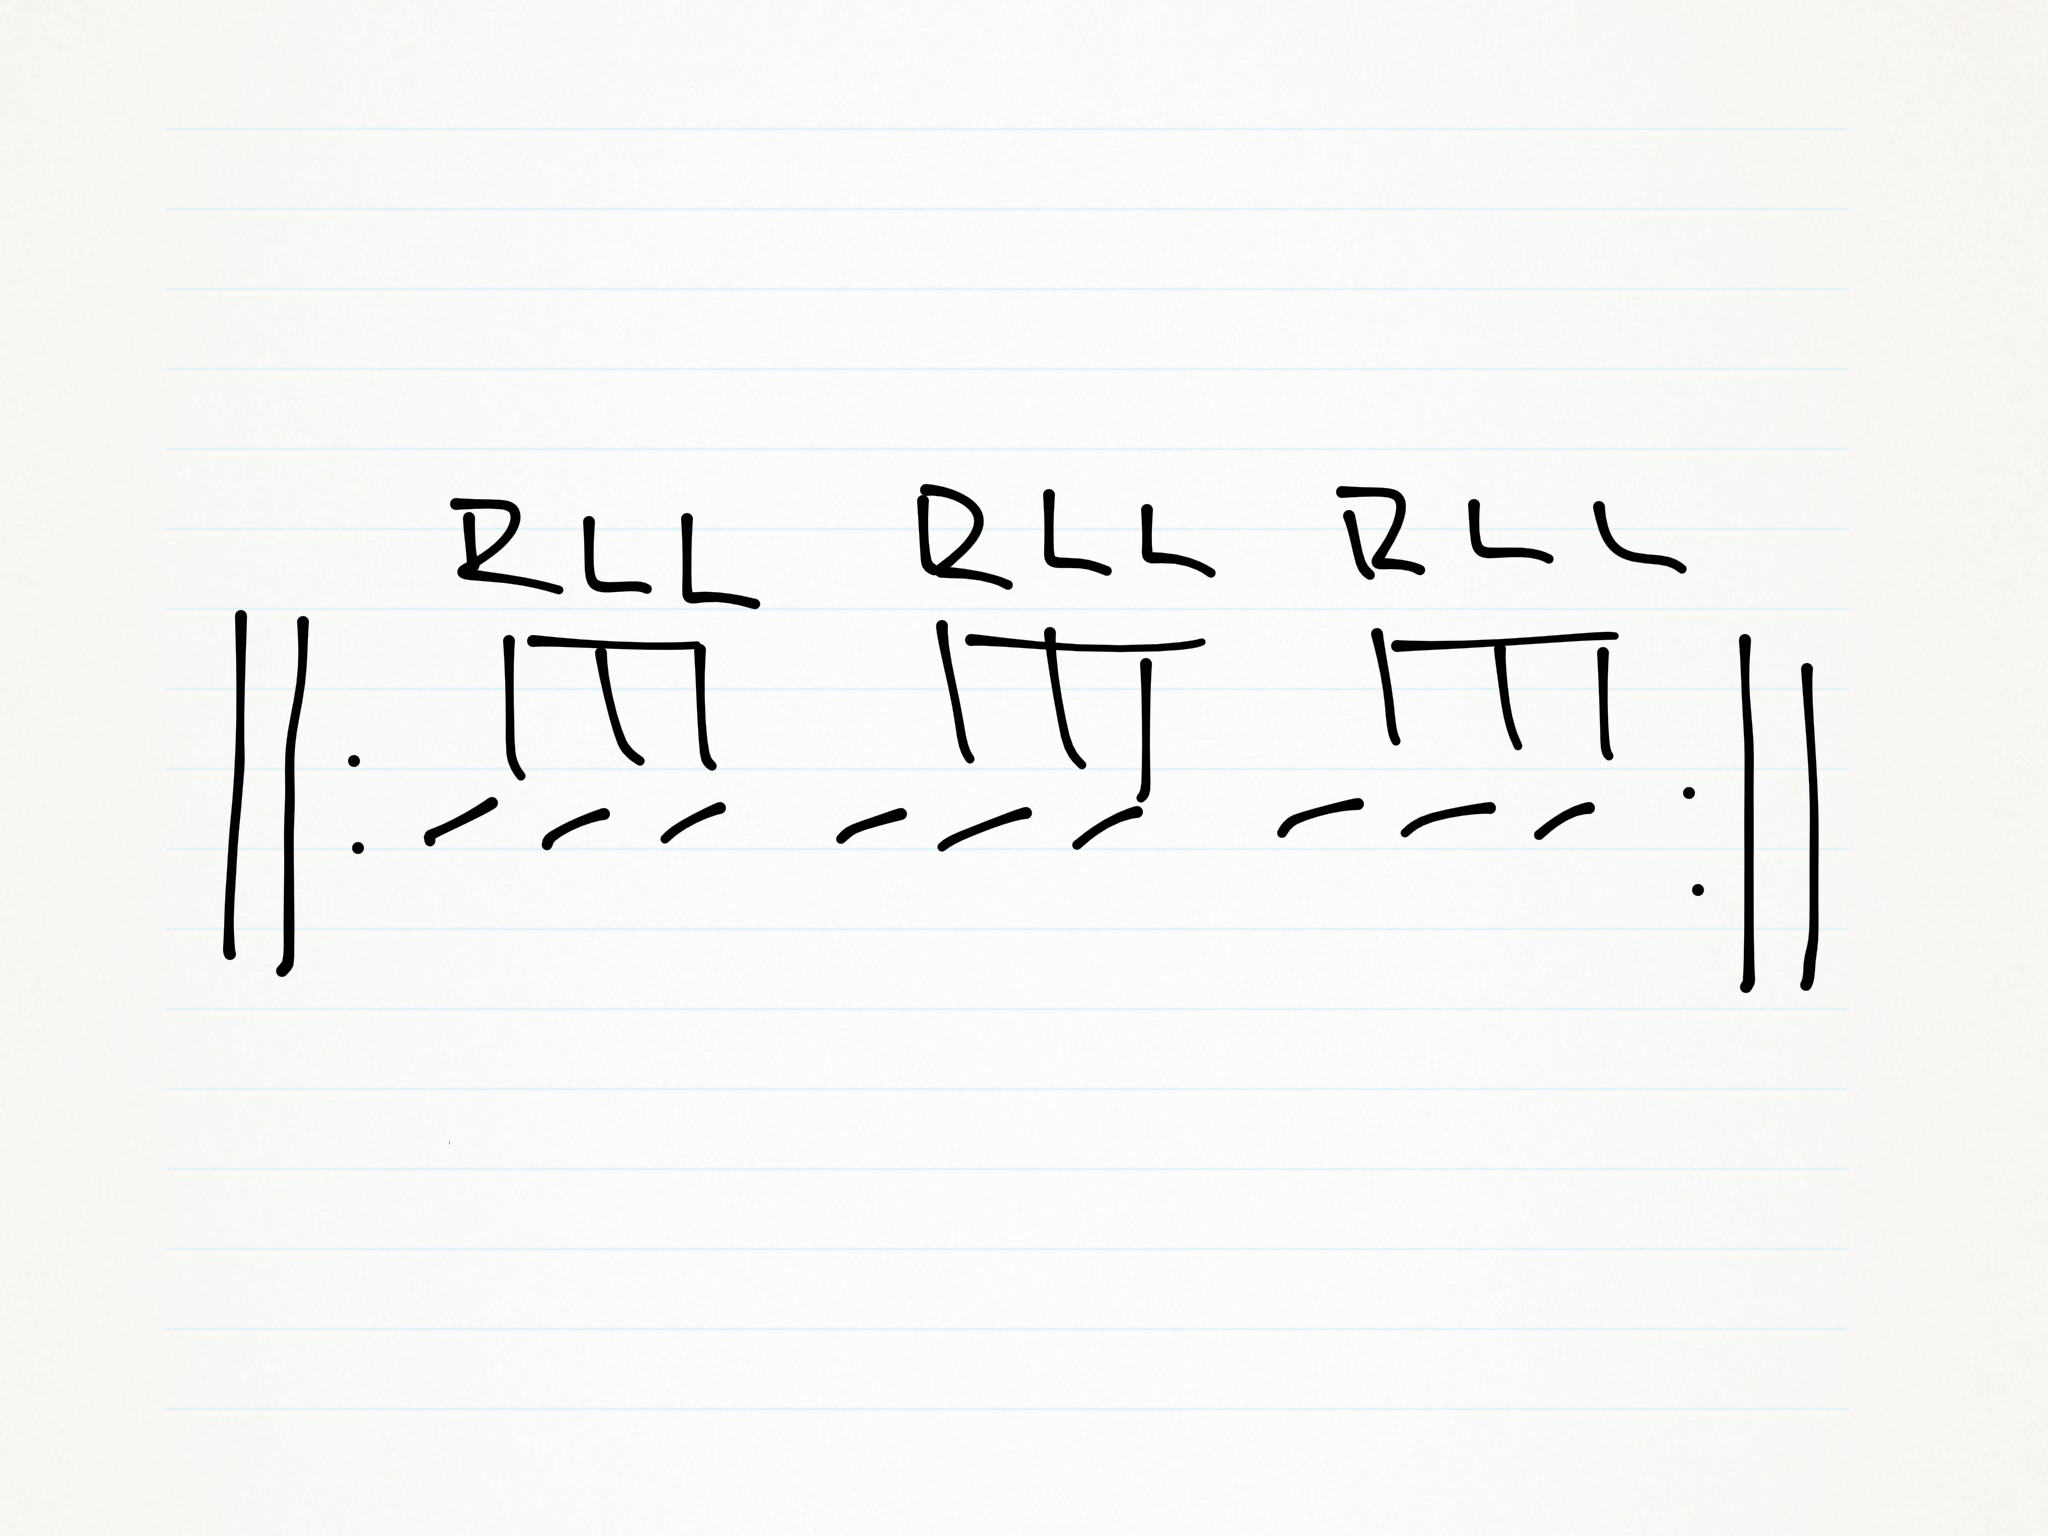 RLL RLL RLL